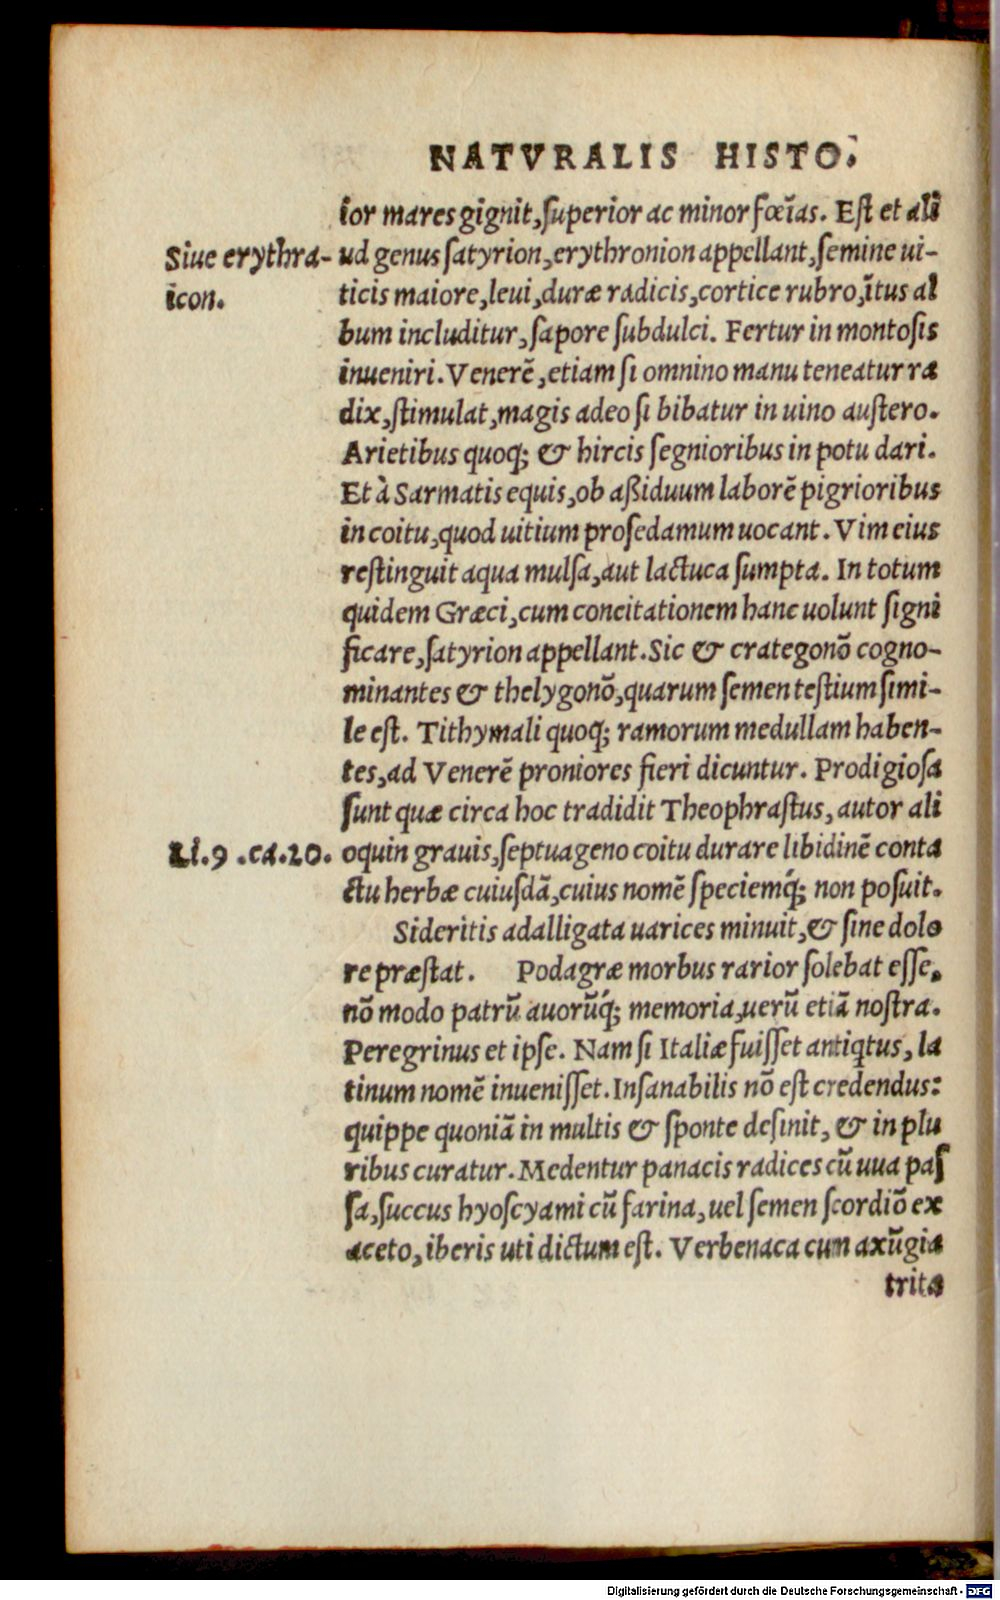 NATVRALIS HISTO.
ior mares gignit, superior ac minor fœĩas. Est et ali
Siue erythra-
icon.
ud genus satyrion, erythronion appellant, semine ui-
ticis maiore, leui, duræ radicis, cortice rubro, ĩtus al
bum includitur, sapore subdulci. Fertur in montosis
inueniri. Venerẽ, etiam si omnino manu teneatur ra
dix, stimulat, magis adeo si bibatur in uino austero.
Arietibus quoq; & hircis segnioribus in potu dari.
Et à Sarmatis equis, ob aßiduum laborẽ pigrioribus
in coitu, quod uitium prosedamum uocant. Vim eius
restinguit aqua mulsa, aut lactuca sumpta. In totum
quidem Græci, cum concitationem hanc uolunt signi
ficare, satyrion appellant. Sic & crategonõ cogno-
minantes & thelygonõ, quarum semen testium simi-
le est. Tithymali quoq; ramorum medullam haben-
tes, ad Venerẽ proniores fieri dicuntur. Prodigiosa
sunt quæ circa hoc tradidit Theophrastus, autor ali
Li.9.ca.20.
oquin grauis, septuageno coitu durare libidinẽ conta
ctu herbæ cuiusdã, cuius nomẽ speciemq́; non posuit.
Sideritis adalligata uarices minuit, & sine dolo
re præstat. Podagræ morbus rarior solebat esse,
nõ modo patrũ auorũq́; memoria, uerũ etiã nostra.
Peregrinus et ipse. Nam si Italiæ fuisset antiqtus, la
tinum nomẽ inuenisset. Insanabilis nõ est credendus:
quippe quoniã in multis & sponte desinit, & in plu
ribus curatur. Medentur panacis radices cũ uua pas
sa, succus hyoscyami cũ farina, uel semen scordiõ ex
aceto, iberis uti dictum est. Verbenaca cum axũgia
trita
Digitalisierung gefördert durch die Deutsche Forschungsgemeinschaft - DFG